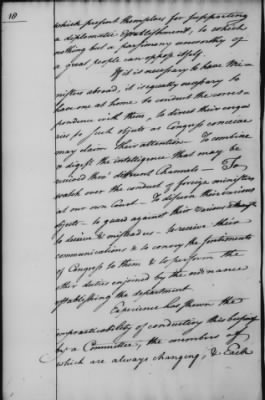 10
which present themselves for supporting
a diplomatic Establishment, to which
nothing but a parsimony unworthy of
a great people can oppose itself.
If it is necessary to have Mi-
nisters abroad, it is equally necessary to
have one at home to conduct the corres-
pondence with them, to direct their inqui
ries to such objects as Congress conceive
may claim their attention. To combine
& digest the intelligence that may be
received thro' different Channels — To
watch over the conduct of foreign ministers
at our own Court — To discern their various
objects — to guard against their various
to deceive & mislead us — to receive their
communications & to convey the sentiments
of Congress to them & to perform the
other duties enjoined by the ordinance
establishing the department
Experience has shewn the
impracticability of conducting this business
by a Committee, the members of
which are always changing, & Each